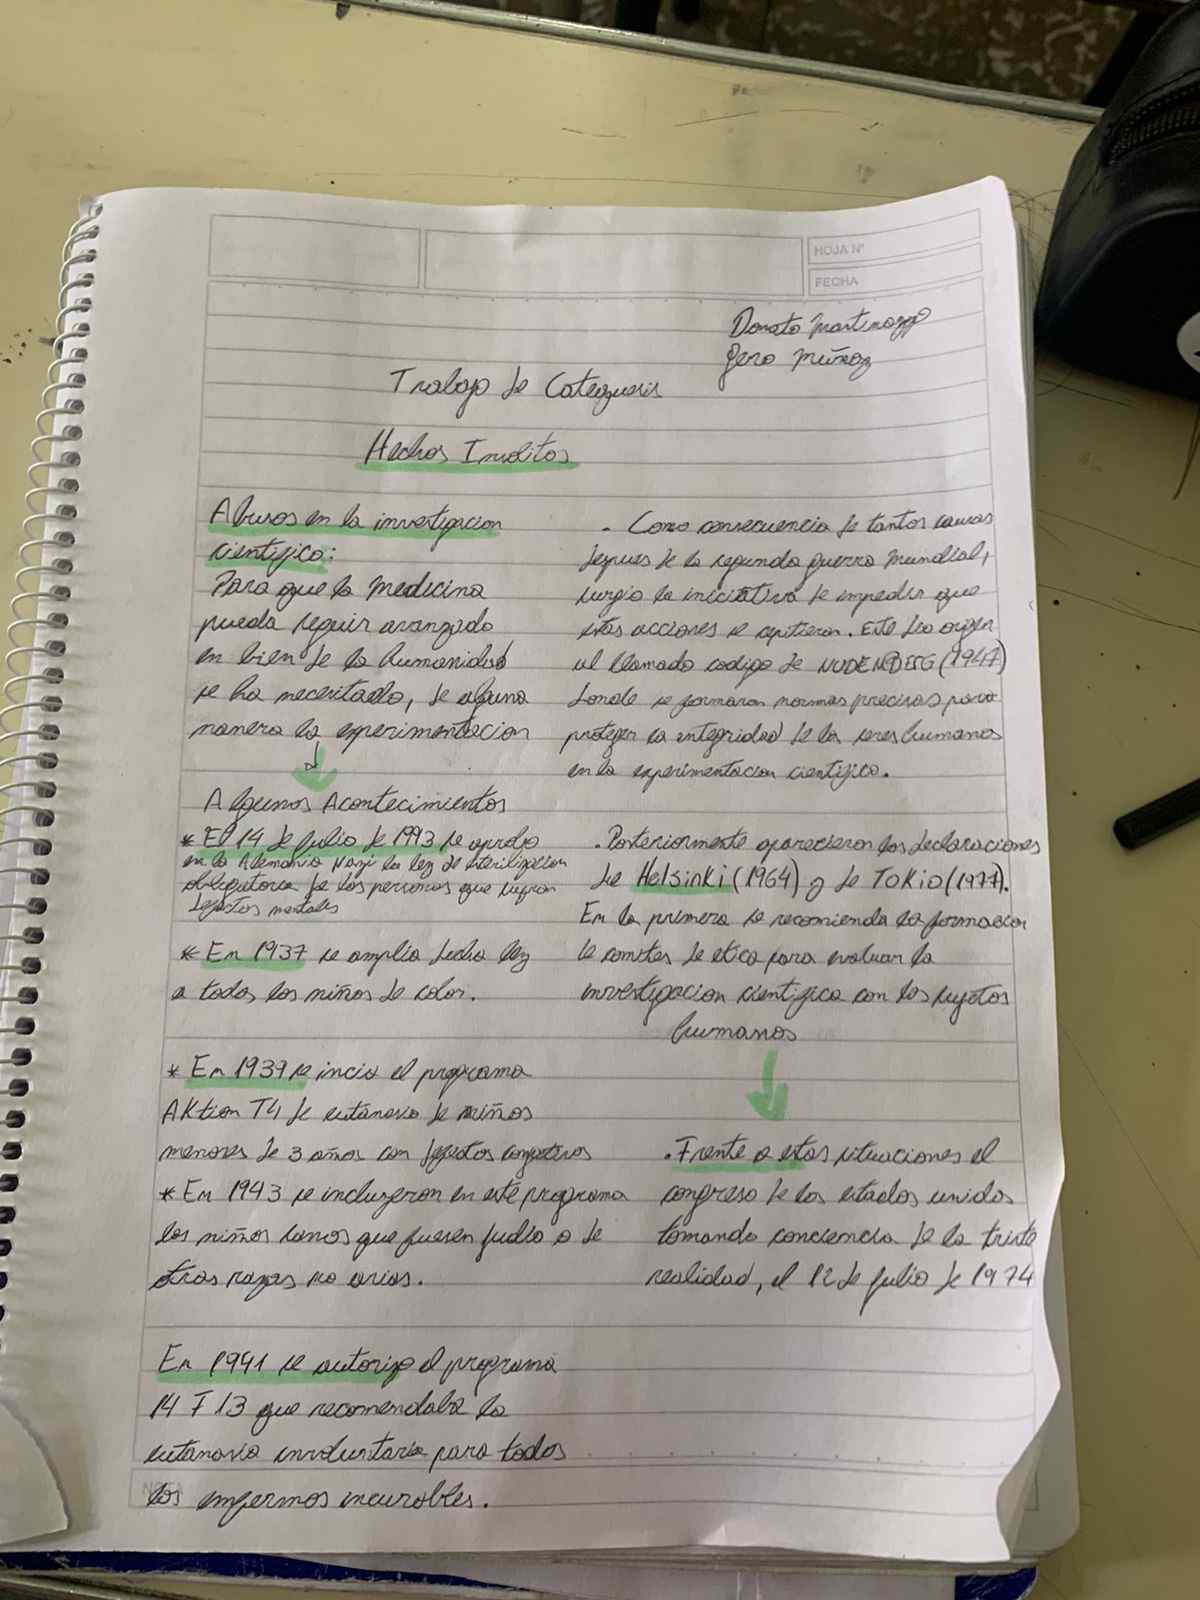 HOJA Nº
FECHA
Donato Martinazzo
Gero Muñoz
Trabajo de Catequesis
Hechos Insolitos
Abusos en la investigacion
cientifica:
Para que la Medicina
pueda seguir avanzado
en bien de la humanidad
se ha necesitado, de alguna
manera la experimentacion
Algunos Acontecimientos
* El 14 de Julio de 1993 se aprobo
en la Alemania Nazi la ley de esterilizacion
obligatoria de las personas que sufran
defectos mentales
* En 1937 se amplia dicha ley
a todos los niños de color.
* En 1939 se incia el programa
AKtion T4 de eutanasia de niños
menores de 3 años con defectos congetivos
* En 1943 se incluyeron en este programa
los niños sanos que fuesen judio o de
otras razas no arias.
En 1941 se autorizo el programa
14 F 13 que recomendaba la
eutanasia involuntaria para todos
los enfermos incurables.
. Como consecuencia de tantos causas
despues de la segunda guerra Mundial,
surgio la iniciativa de impedir que
estas acciones se repitieran. Este dio origen
al llamado codigo de NUDENBERG (1947)
donde se formaron normas precisas para
proteger la integridad de los seres humanos
en la experimentacion cientifica.
. Posteriormente aparecieron las declaraciones
de Helsinki (1964) y de Tokio (1977).
En la primera se recomienda la formacion
de comites de etica para evaluar la
investigacion cientifica con los sujetos
humanos
. Frente a estas situaciones el
congreso de los estados unidos
tomando conciencia de la triste
realidad, el 12 de Julio de 1974